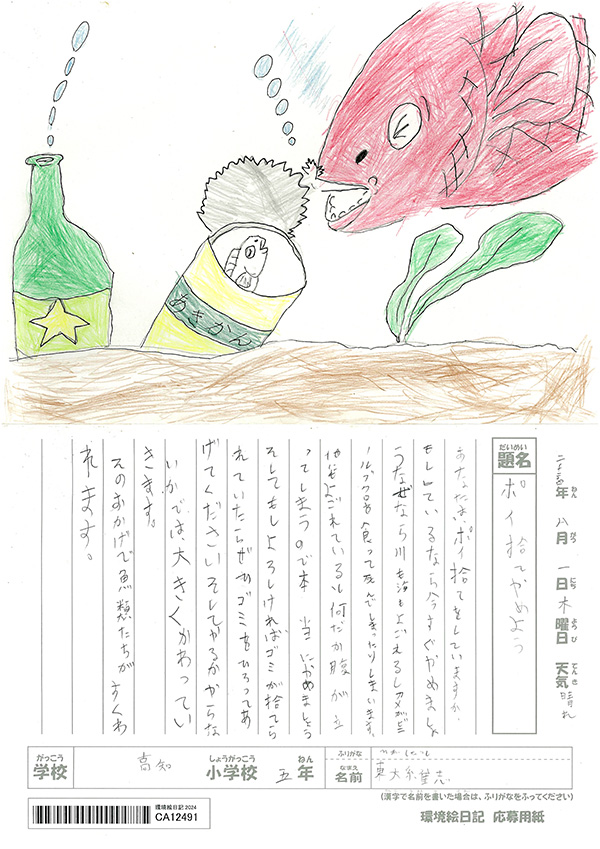 あきかん
二〇二四年 八月 一日 木曜日 天気 晴れ
ねん がつ にち ようび てんき
だいめい
題名
ポイ捨てやめよう
あなたは、ポイ捨てをしていますか。
もし、しているなら今すぐやめましょ
うなぜなら川も海もよごえるしカメがビニ
ールブクロを食って死んでしまったりしまいます。
地はよごれているし何だか腹が立
ってしまうので本当にやめましょう
そしてもしよろしければゴミが捨てら
れていたらぜひゴミをひろってあ
げてくださいそしてやるかやらな
いかでは、大きくかわってい
きます。
そのおかげで魚類たちがすくわ
れます。
がっこう
学校
高知
しょうがっこう
小学校
五
ねん
年
ふりがな
なまえ
名前
(漢字で名前を書いた場合は、ふりがなをふってください)
環境絵日記2024
CA12491
環境絵日記 応募用紙